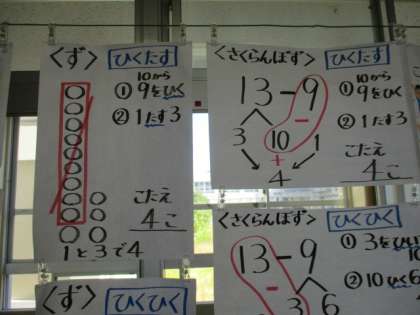 <ず> ひくたす
10から
① 9をひく
② 1たす3
こたえ
4こ
1と3で4
<さくらんぼず> ひくたす
13-9
3 10 1
-
+
4
10から
① 9をひく
② 1たす3
こたえ
4こ
<ず> ひくひく
<さくらんぼず> ひくひく
13-9
3 6
-
① 3をひ
10
② 10ひく6